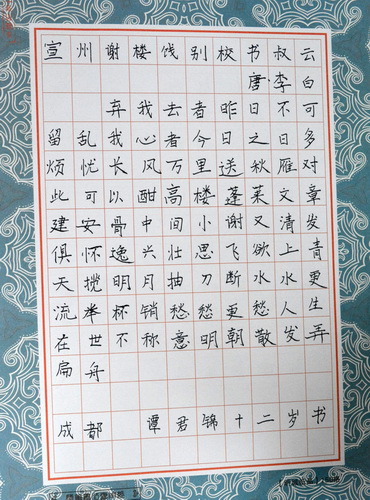 宣州谢楼饯别校书叔云
唐·李白
弃我去者昨日不可
留乱我心者今日之日多
烦忧长风万里送秋雁对
此可以酣高楼蓬莱文章
建安骨中间小谢又清发
俱怀逸兴壮思飞欲上青
天揽明月抽刀断水水更
流举杯销愁愁更愁人生
在世不称意明朝散发弄
扁舟
成都 谭君锦十二岁书